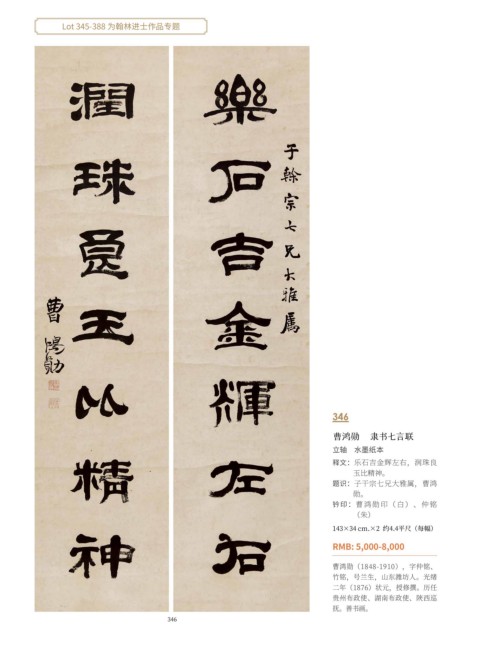 Lot 345-388 为翰林进士作品专题
樂石吉金輝左右
子榦宗七兄大雅屬
潤珠良玉比精神
曹鴻勛
346
曹鸿勋 隶书七言联
立轴 水墨纸本
释文：乐石吉金辉左右，润珠良
玉比精神。
题识：子干宗七兄大雅属，曹鸿
勋。
钤印：曹鸿勋印（白）、仲铭
（朱）
143×34 cm.×2 约4.4平尺（每幅）
RMB: 5,000-8,000
曹鸿勋（1848-1910），字仲铭、
竹铭，号兰生，山东潍坊人。光绪
二年（1876）状元，授修撰。历任
贵州布政使、湖南布政使、陕西巡
抚。善书画。
346